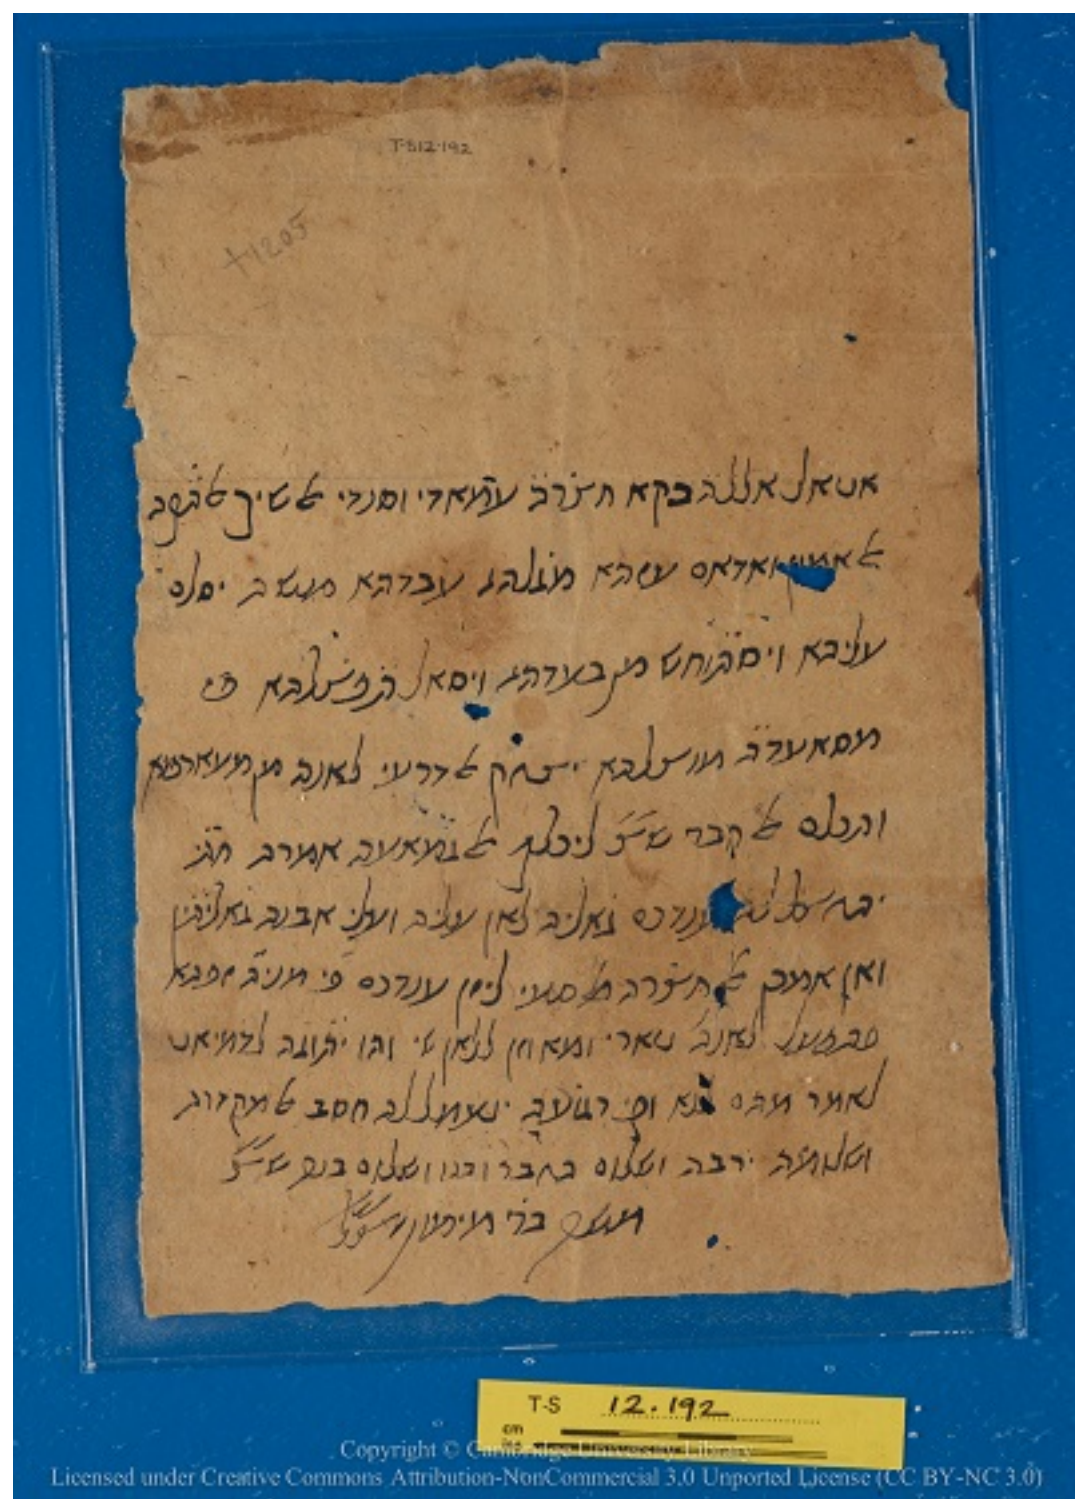 T-S12.192
+1205
אטאל אללה בקא חצ̇רה̈ עמאדי וסנדי אלשיך אלת̇קה
אלאמין ואדאם עזהא מג̇להא עבדהא משה יסלם
עליהא ויסתוחש מן בעדהא ויסאל תפצ̇להא פי
מסאעדה̈ מוצלהא יצחק אלדרעי לאנה מן מעארפנא
ותכלם אלחבר ש״צ ליכלף אלג̇מאעה אמרה חתי
יחצל לה ענדכם ג̇אליה לאן עליה ועלי אבנה ג̇אליתין
ואן אמכן אלחצ̇רה אלסעי ליזן ענדכם פי מניה̈ זפתא
פתפעל לאנה טארי ומא וזן ללאן שי והו יתוגה לדמיאט
לאמר מהם לנא ופי רגועה יעמל לה חסב אלמקדור
ושלומה ירבה ושלום חברו ובנו ושלום בנה ש״צ
משה ברׄ מימון זצ״ל
T-S 12.192
cm
Copyright © Cambridge University Library
Licensed under Creative Commons Attribution-NonCommercial 3.0 Unported License (CC BY-NC 3.0)